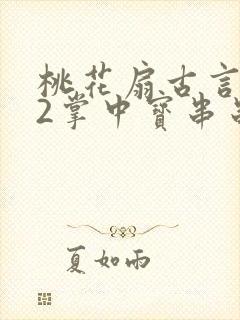 桃花扇古言
2掌中寳串
夏如雨